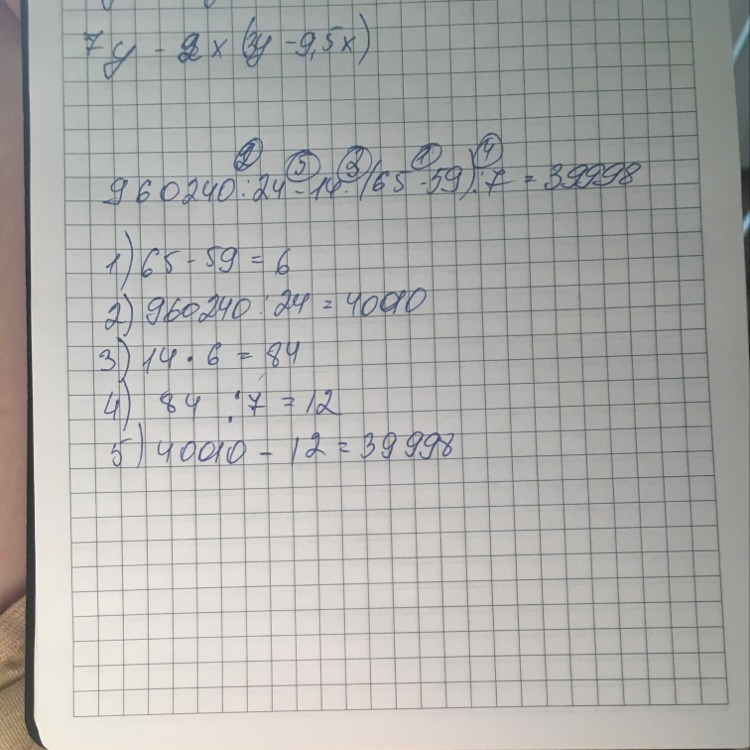 7y - 2x (3y - 9,5x)
2 5 3 1 4
960240 : 24 - 14 · (65 - 59) : 7 = 39998
1) 65 - 59 = 6
2) 960240 : 24 = 40010
3) 14 · 6 = 84
4) 84 : 7 = 12
5) 40010 - 12 = 39998